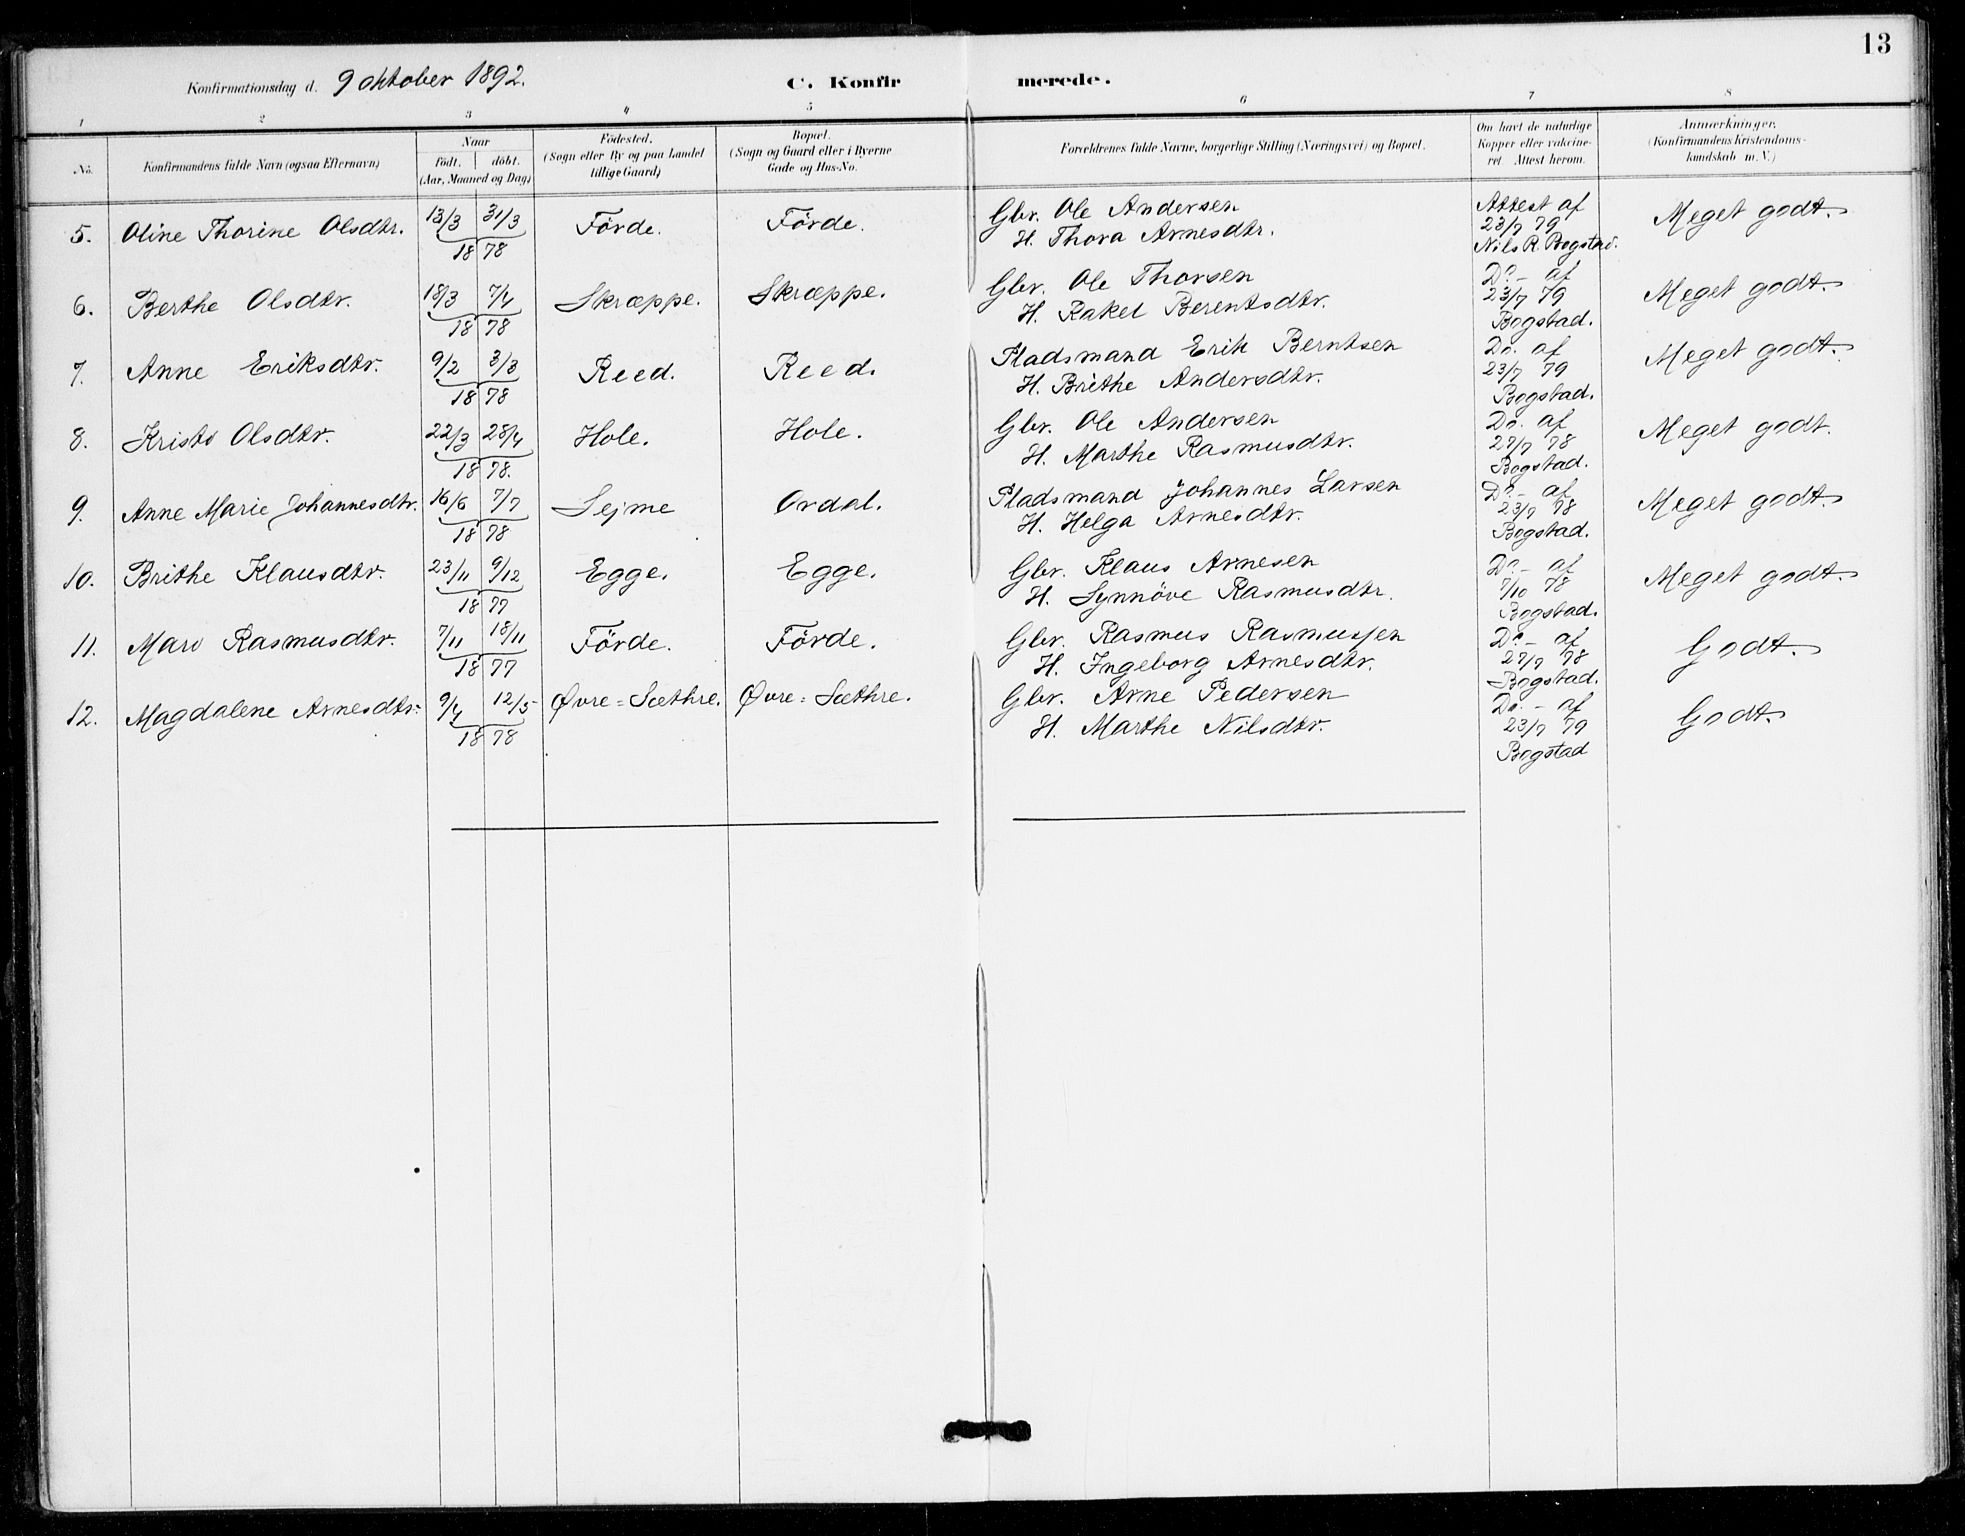 13
Konfirmationsdag d. 9 oktober 1892. C. Konfirmerede.
1 2 3 4 5 6 7 8
No. Konfirmandens fulde Navn (ogsaa Efternavn) Naar født. døbt. (Aar, Maaned og Dag) Fødested. (Sogn eller By og paa Landet tillige Gaard) Bopæl. (Sogn og Gaard eller i Byerne Gade og Hus-No. Forældrenes fulde Navne, borgerlige Stilling (Næringsvei) og Bopæl. Om havt de naturlige Kopper eller vakcineret. Attest herom. Anmærkninger. (Konfirmandens Kristendomskundskab m. V.)
5. Oline Thorine Olsdtr. 13/3 31/3 1878 Førde. Førde. Gbr. Ole Andersen H. Thora Arnesdtr. Attest af 23/7 79 Nils R. Bogstad. Meget godt.
6. Berthe Olsdtr. 18/3 7/4 1878 Skræppe. Skræppe. Gbr. Ole Thorsen H. Rakel Berentsdtr. Do.- af 23/7 79 Bogstad. Meget godt.
7. Anne Eriksdtr. 9/2 3/3 1878 Reed. Reed. Pladsmand Erik Berntsen H. Brithe Andersdtr. Do. af 23/7 79 Bogstad. Meget godt.
8. Kristi Olsdtr. 22/3 28/4 1878. Hole. Hole. Gbr. Ole Andersen H. Marthe Rasmusdtr. Do. af 27/7 78 Bogstad. Meget godt.
9. Anne Marie Johannesdtr. 16/6 7/7 1878 Sejme Ordal. Pladsmand Johannes Larsen H. Helga Arnesdtr. Do.- af 23/7 78 Bogstad. Meget godt.
10. Brithe Klausdtr. 23/11 9/12 1877 Egge. Egge. Gbr. Klaus Arnesen H. Synnöve Rasmusdtr. Do.- af 7/10 78 Bogstad. Meget godt.
11. Mari Rasmusdtr. 7/11 18/11 1877 Førde. Førde. Gbr. Rasmus Rasmussen H. Ingeborg Arnesdtr. Do.- af 27/7 78 Bogstad. Godt.
12. Magdalene Arnesdtr. 9/4 12/5 1878 Øvre=Sæthre. Øvre=Sæthre. Gbr. Arne Pedersen H. Marthe Nilsdtr. Do.- af 23/7 79 Bogstad Godt.